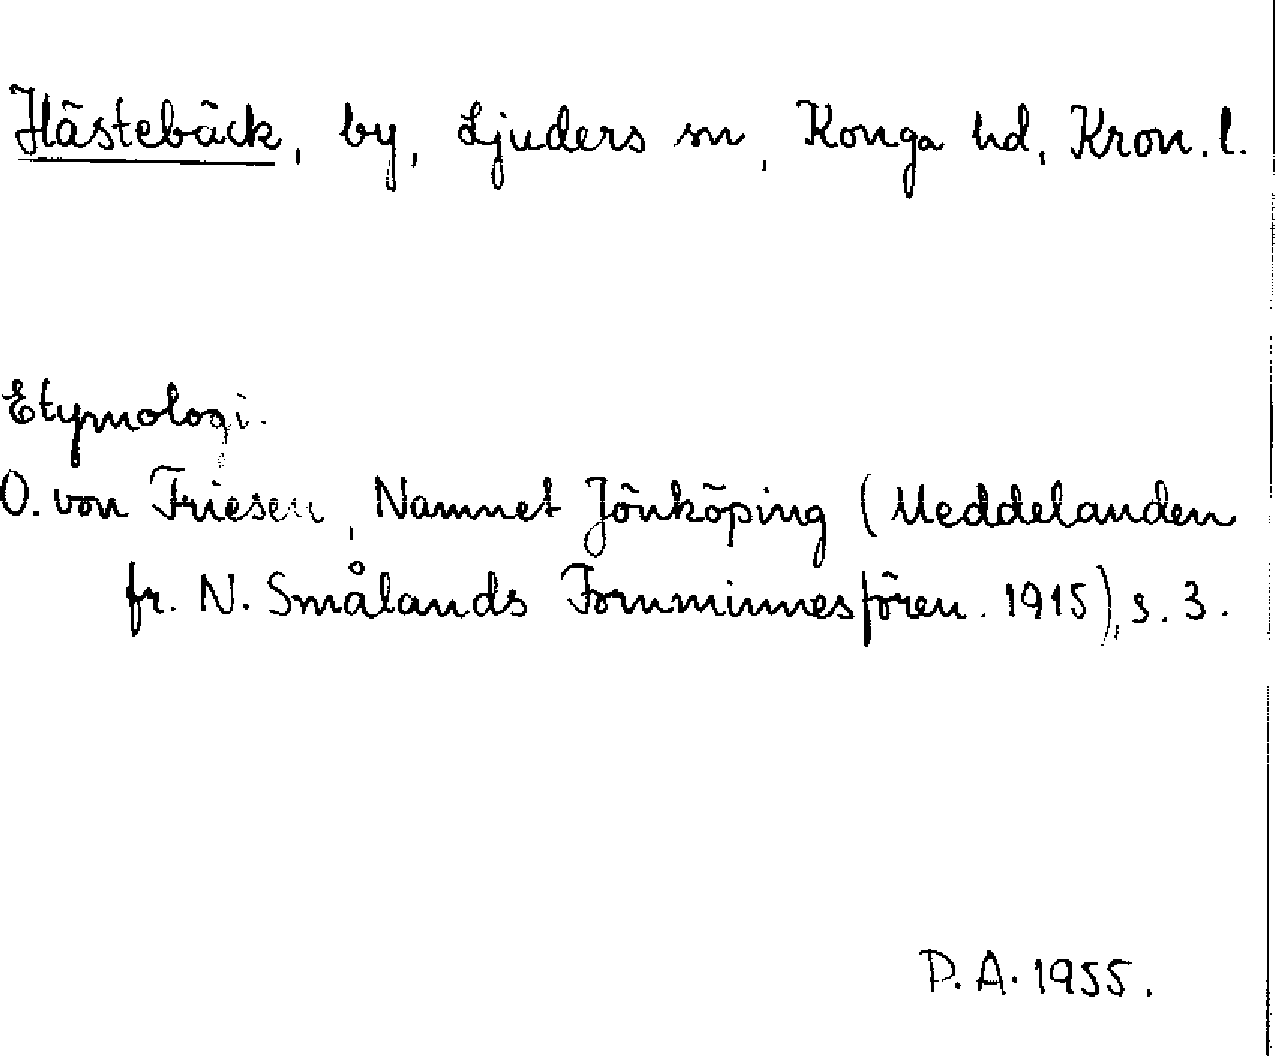 Hästebäck, by, Ljuders sn, Konga hd, Kron. l.
Etymologi.
O. von Friesen, Namnet Jönköping (Meddelanden
fr. N. Smålands Fornminnesfören. 1915), s. 3.
P. A. 1955.